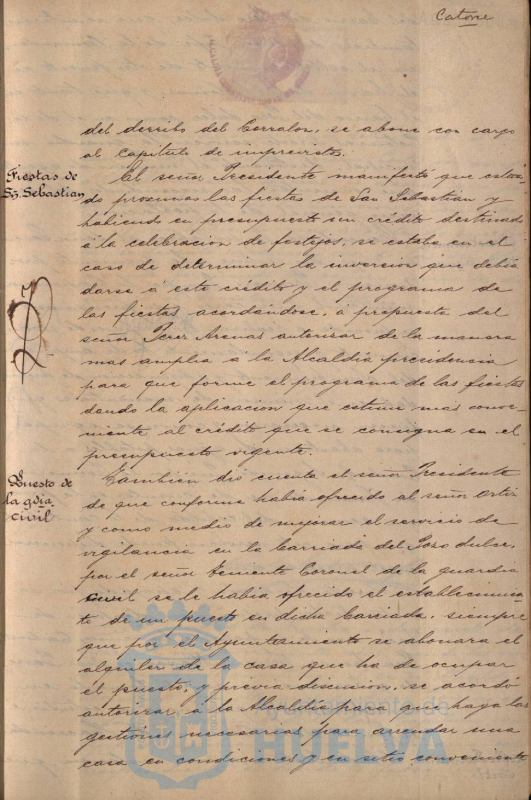 Catorce
del derribo del Corralon, se abone con cargo
al capítulo de imprevistos.
Fiestas de
Sn. Sebastian
El señor Presidente manifestó que estan-
do proximas las fiestas de San Sebastian y
habiendo en presupuesto un crédito destinado
á la celebracion de festejos, se estaba en el
caso de determinar la inversion que debia
darse á este crédito y el programa de
las fiestas acordándose, á propuesta del
señor Perez Arenas autorizar de la manera
mas amplia á la Alcaldía presidencia
para que forme el programa de las fiestas
dando la aplicacion que estime mas conve-
niente al crédito que se consigna en el
presupuesto vigente.
Puesto de
la gdia
civil
Tambien dió cuenta el señor Presidente
de que conforme habia ofrecido al señor Ortiz
y como medio de mejorar el servicio de
vigilancia en la barriada del Pozo dulce,
por el señor Teniente Coronel de la guardia
civil se le habia ofrecido el establecimien-
to de un puesto en dicha barriada, siempre
que por el Ayuntamiento se abonara el
alquiler de la casa que ha de ocupar
el puesto, y previa discusion, se acordó
autorizar á la Alcaldía para que haga las
gestiones necesarias para arrendar una
casa en condiciones y en sitio conveniente
HUELVA